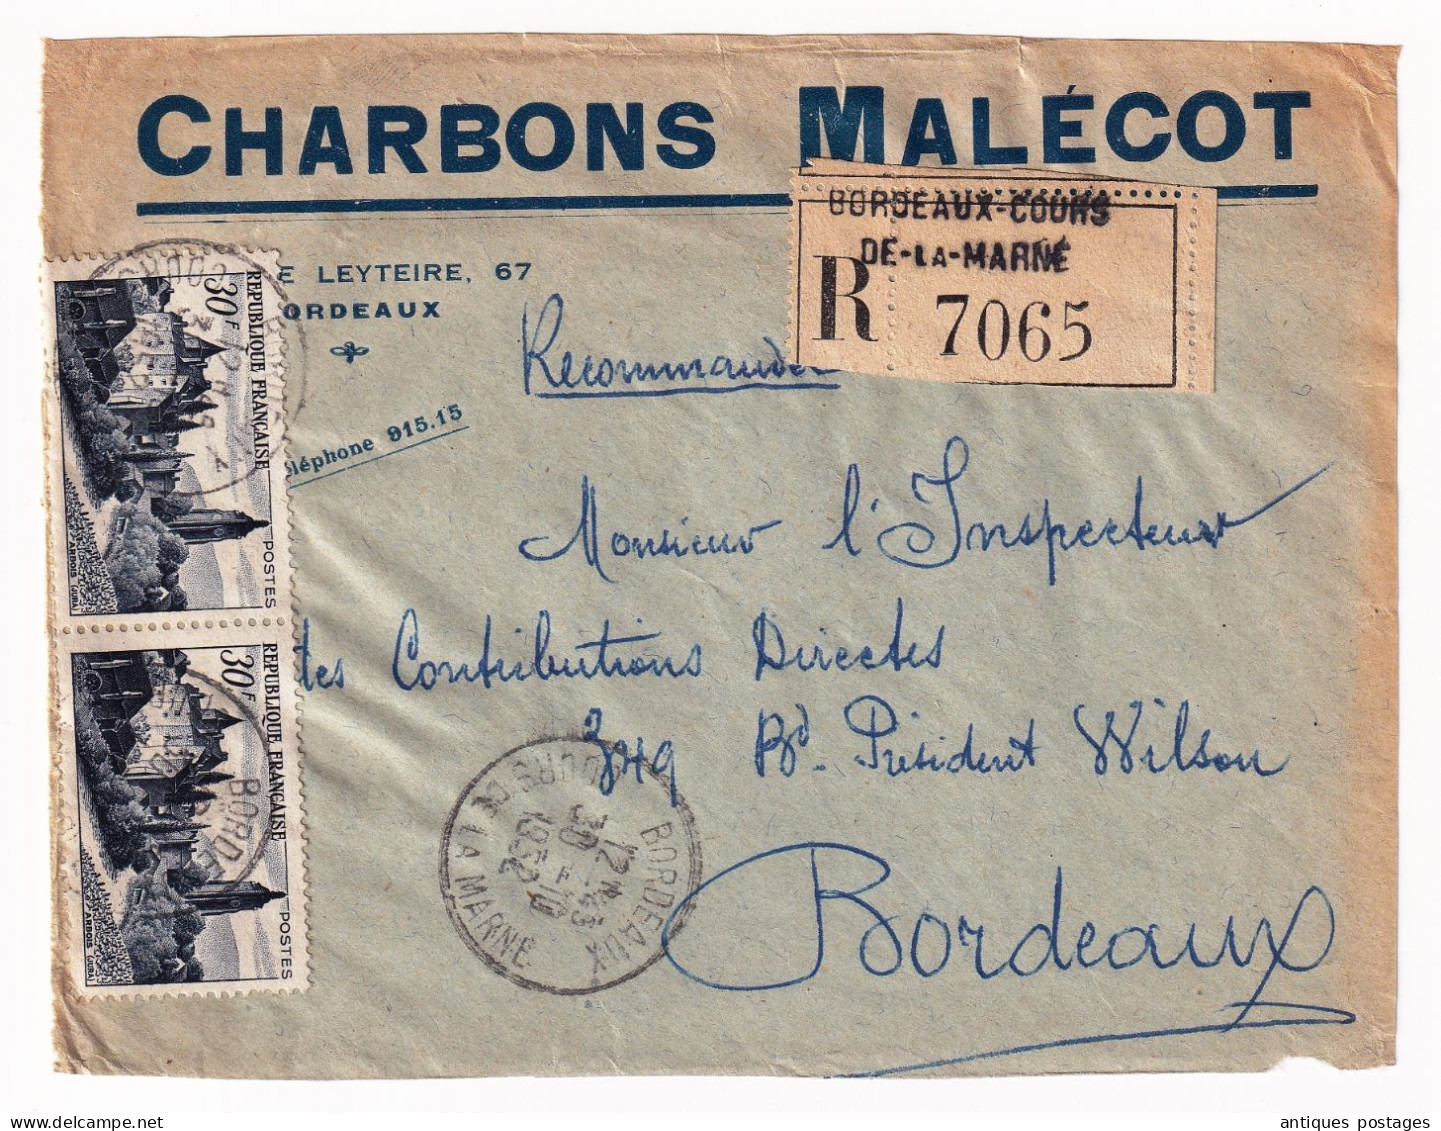 CHARBONS MALÉCOT
E LEYTEIRE, 67
ORDEAUX
léphone 915.15
BORDEAUX-COURS
DE-LA-MARNE
R 7065
Recommandé
Monsieur l'Inspecteur
des Contributions Directes
349 Bd. Président Wilson
Bordeaux
30F
REPUBLIQUE FRANÇAISE
POSTES
ARBOIS (JURA)
30F
REPUBLIQUE FRANÇAISE
POSTES
ARBOIS (JURA)
BORDE
BORDEAUX
COURS DE LA MARNE
12 H 43
30 10
1952
antiques postages